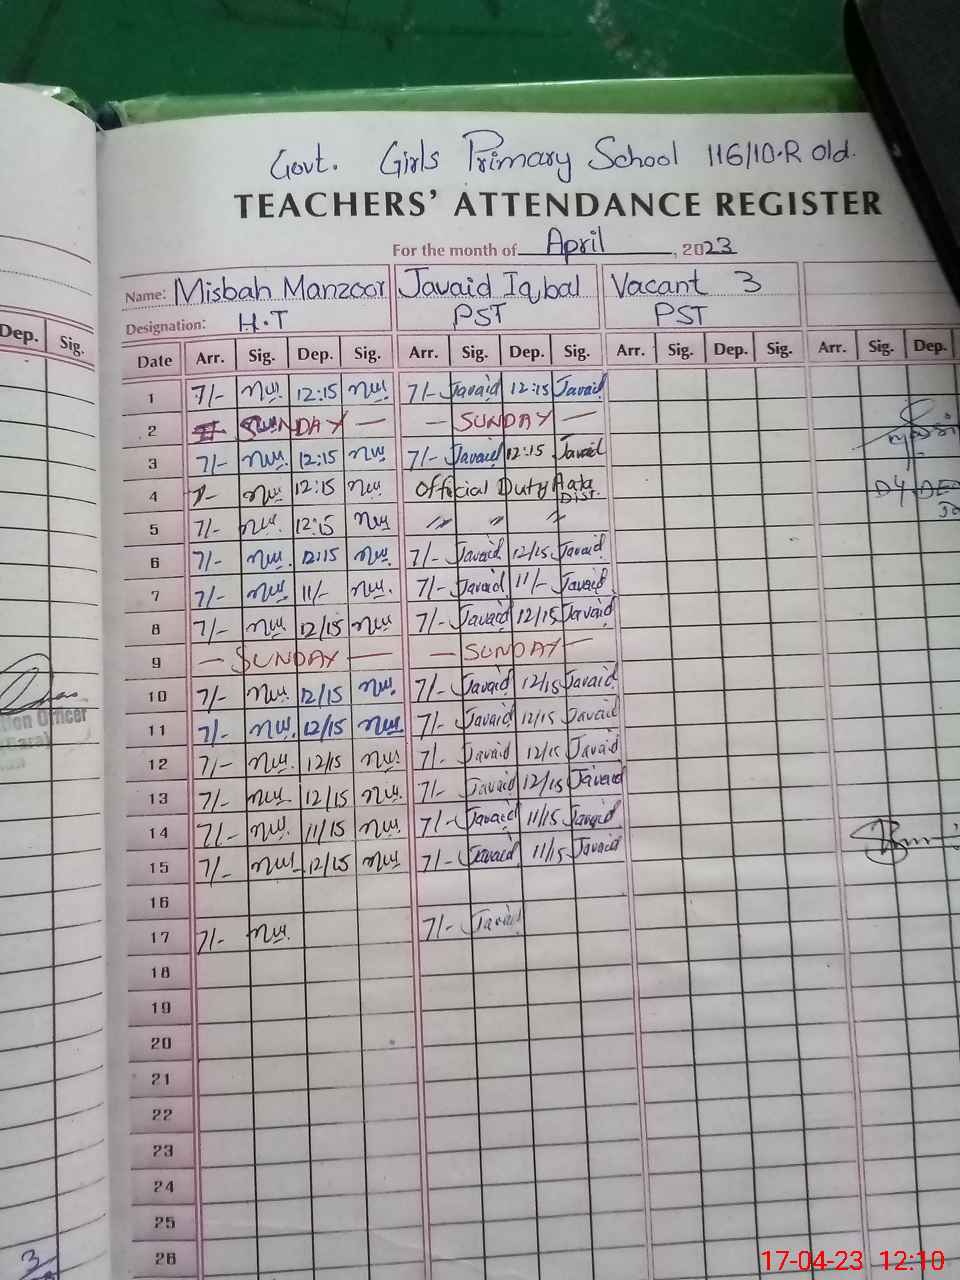 Govt. Girls Primary School 116/10.R old.
TEACHERS' ATTENDANCE REGISTER
For the month of April, 2023
Name: Misbah Manzoor Javaid Iqbal Vacant 3
Designation: H.T PST PST
Dep. Sig.
Date Arr. Sig. Dep. Sig. Arr. Sig. Dep. Sig. Arr. Sig. Dep. Sig. Arr. Sig. Dep.
1 7/- 12:15 7/- Javaid 12:15 Javaid
2 SUNDAY — — SUNDAY —
3 7/- 12:15 7/- Javaid 12:15 Javaid
4 12:15 Official Duty Dist.
5 7/- 12:15 〃 〃 〃
6 7/- 12:15 7/- Javaid 12/15 Javaid
7 7/- 11/- 7/- Javaid 11/- Javaid
8 7/- 12/15 7/- Javaid 12/15 Javaid
9 — SUNDAY — — SUNDAY —
10 7/- 12/15 7/- Javaid 12/15 Javaid
11 7/- 12/15 7/- Javaid 12/15 Javaid
12 7/- 12/15 7/- Javaid 12/15 Javaid
13 7/- 12/15 7/- Javaid 12/15 Javaid
14 7/- 11/15 7/- Javaid 11/15 Javaid
15 7/- 12/15 7/- Javaid 11/15 Javaid
16
17 7/- 7/- Javaid
18
19
20
21
22
23
24
25
26
Officer
3
17-04-23 12:10